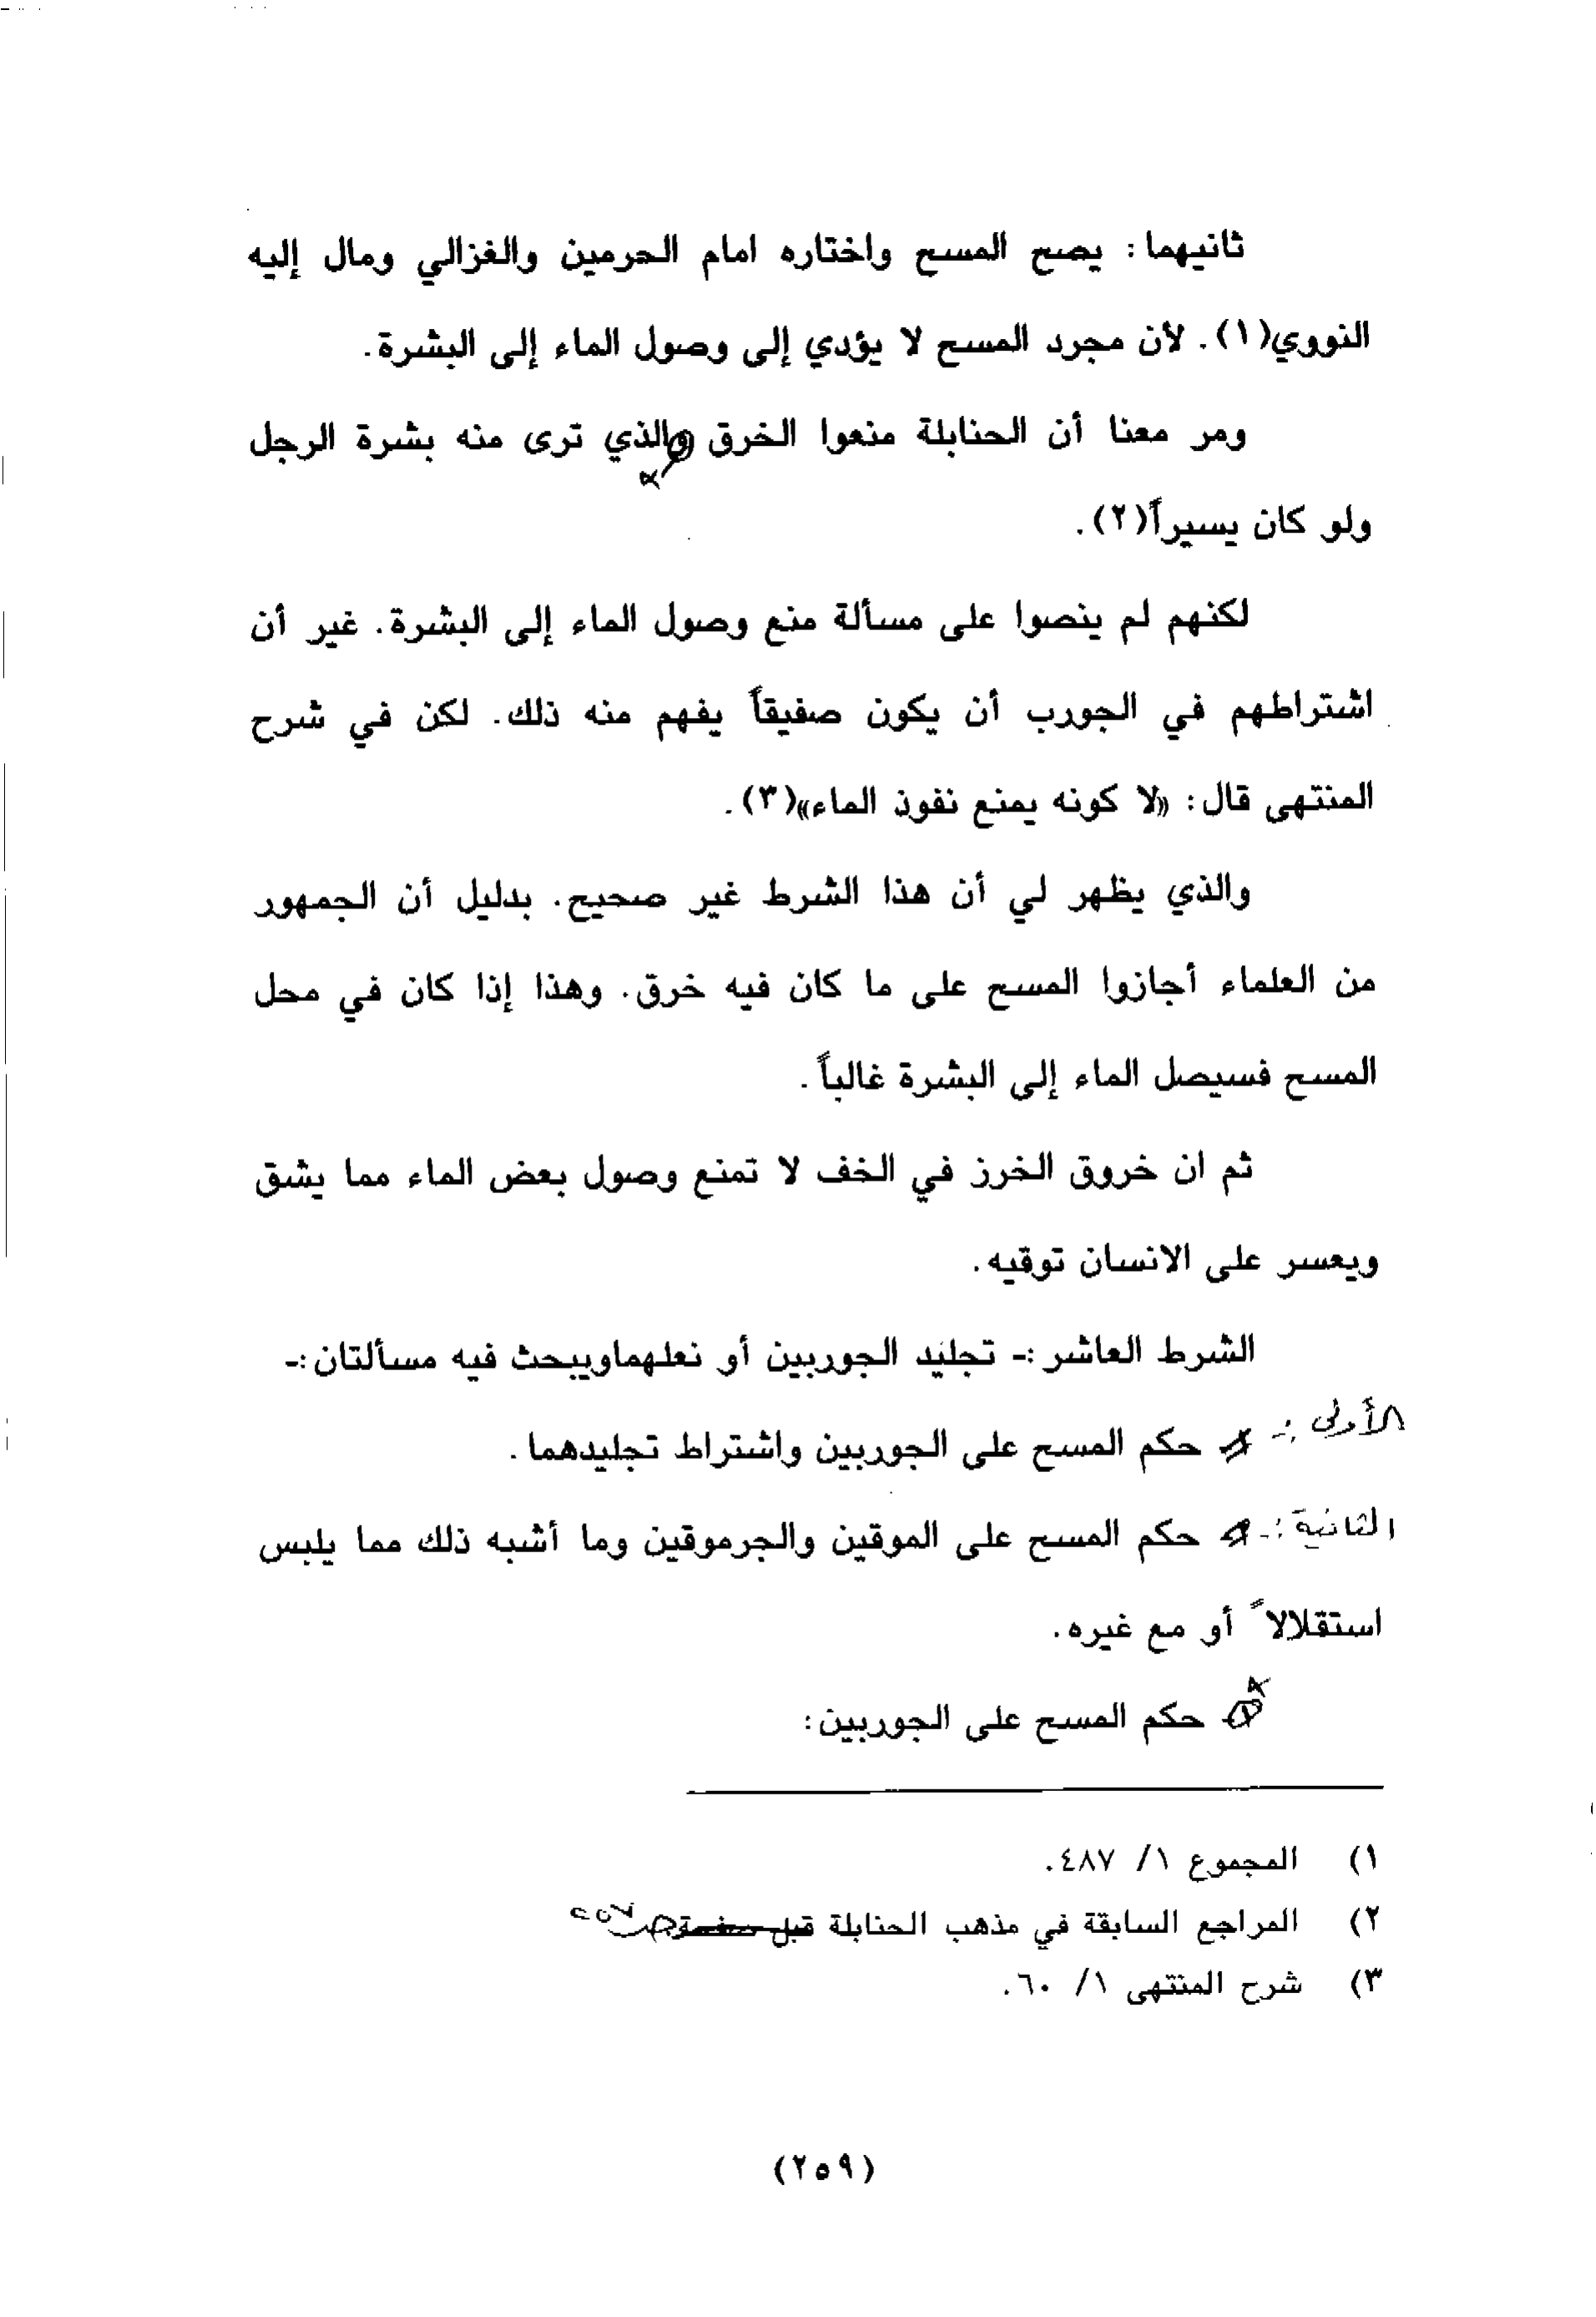 ثانيهما : يصح المسح واختاره امام الحرمين والغزالي ومال إليه
النووي(١). لأن مجرد المسح لا يؤدي إلى وصول الماء إلى البشرة.
ومر معنا أن الحنابلة منعوا الخرق والذي ترى منه بشرة الرجل
ولو كان يسيراً(٢).
لكنهم لم ينصوا على مسألة منع وصول الماء إلى البشرة. غير أن
اشتراطهم في الجورب أن يكون صفيقاً يفهم منه ذلك. لكن في شرح
المنتهى قال: «لا كونه يمنع نفوذ الماء»(٣).
والذي يظهر لي أن هذا الشرط غير صحيح. بدليل أن الجمهور
من العلماء أجازوا المسح على ما كان فيه خرق. وهذا إذا كان في محل
المسح فسيصل الماء إلى البشرة غالباً.
ثم ان خروق الخرز في الخف لا تمنع وصول بعض الماء مما يشق
ويعسر على الانسان توقيه.
الشرط العاشر :- تجليد الجوربين أو نعلهماويبحث فيه مسألتان:-
الأولى :- حكم المسح على الجوربين واشتراط تجليدهما.
الثانية :- حكم المسح على الموقين والجرموقين وما أشبه ذلك مما يلبس
استقلالاً أو مع غيره.
حكم المسح على الجوربين:
١) المجموع ١/ ٤٨٧.
٢) المراجع السابقة في مذهب الحنابلة ص
٣) شرح المنتهى ١/ ٦٠.
(٢٥٩)